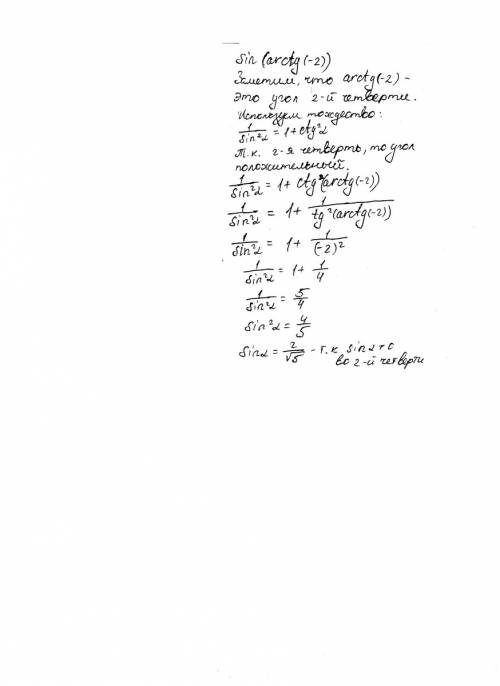 Sin (arctg(-2))
Заметим, что arctg(-2) -
это угол 2-й четверти.
Используем тождество:
1/Sin²α = 1+ctg²α
Т.к. 2-я четверть, то угол
положительный.
1/Sin²α = 1+ ctg²(arctg(-2))
1/Sin²α = 1+ 1/tg²(arctg(-2))
1/Sin²α = 1+ 1/(-2)²
1/Sin²α = 1+ 1/4
1/Sin²α = 5/4
Sin²α = 4/5
Sinα = 2/√5 - т.к sinα>0
во 2-й четверти